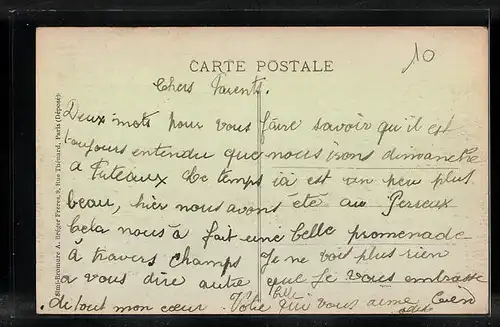 CARTE POSTALE
10
Chers Parents.
Deux mots pour vous faire savoir qu'il est
toujours entendu que nous irons dimanche
a Puteaux le temps ici est un peu plus
beau, hier nous avons été au Perreux
cela nous à fait une belle promenade
à travers champs Je ne voit plus rien
a vous dire autre que Je vous embrasse
de tout mon cœur. Votre fille qui vous aime
Simi-Bromure A. Bréger Frères, 9, Rue Thénard, Paris (Déposé)